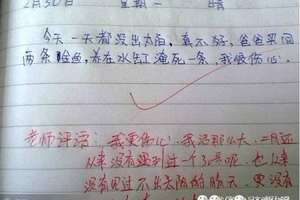 2月30日 星期一 晴
今天一天都没出太阳,真不好,爸爸买回
两条鱼,养在水缸淹死一条,我很伤心。
老师评语:我更伤心,我活那么大,二月还
从来没有碰到过一个30号呢,也从来
没有见过不出太阳的晴天,更没有